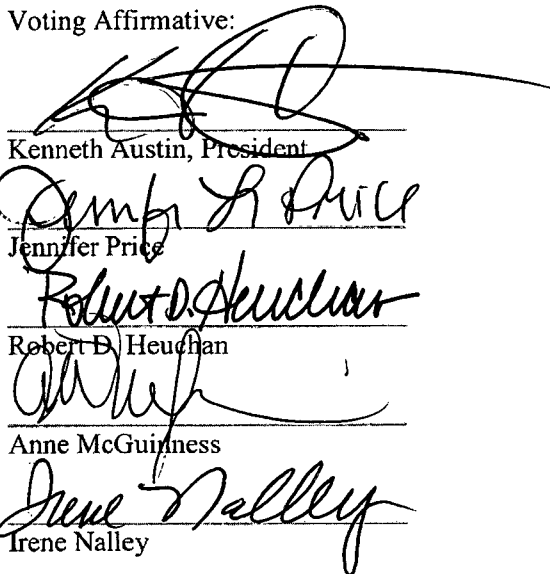 Voting Affirmative:
Kenneth Austin, President
Jennifer L Price
Jennifer Price
Robert D. Heuchan
Robert D. Heuchan
Anne McGuinness
Irene Nalley
Irene Nalley